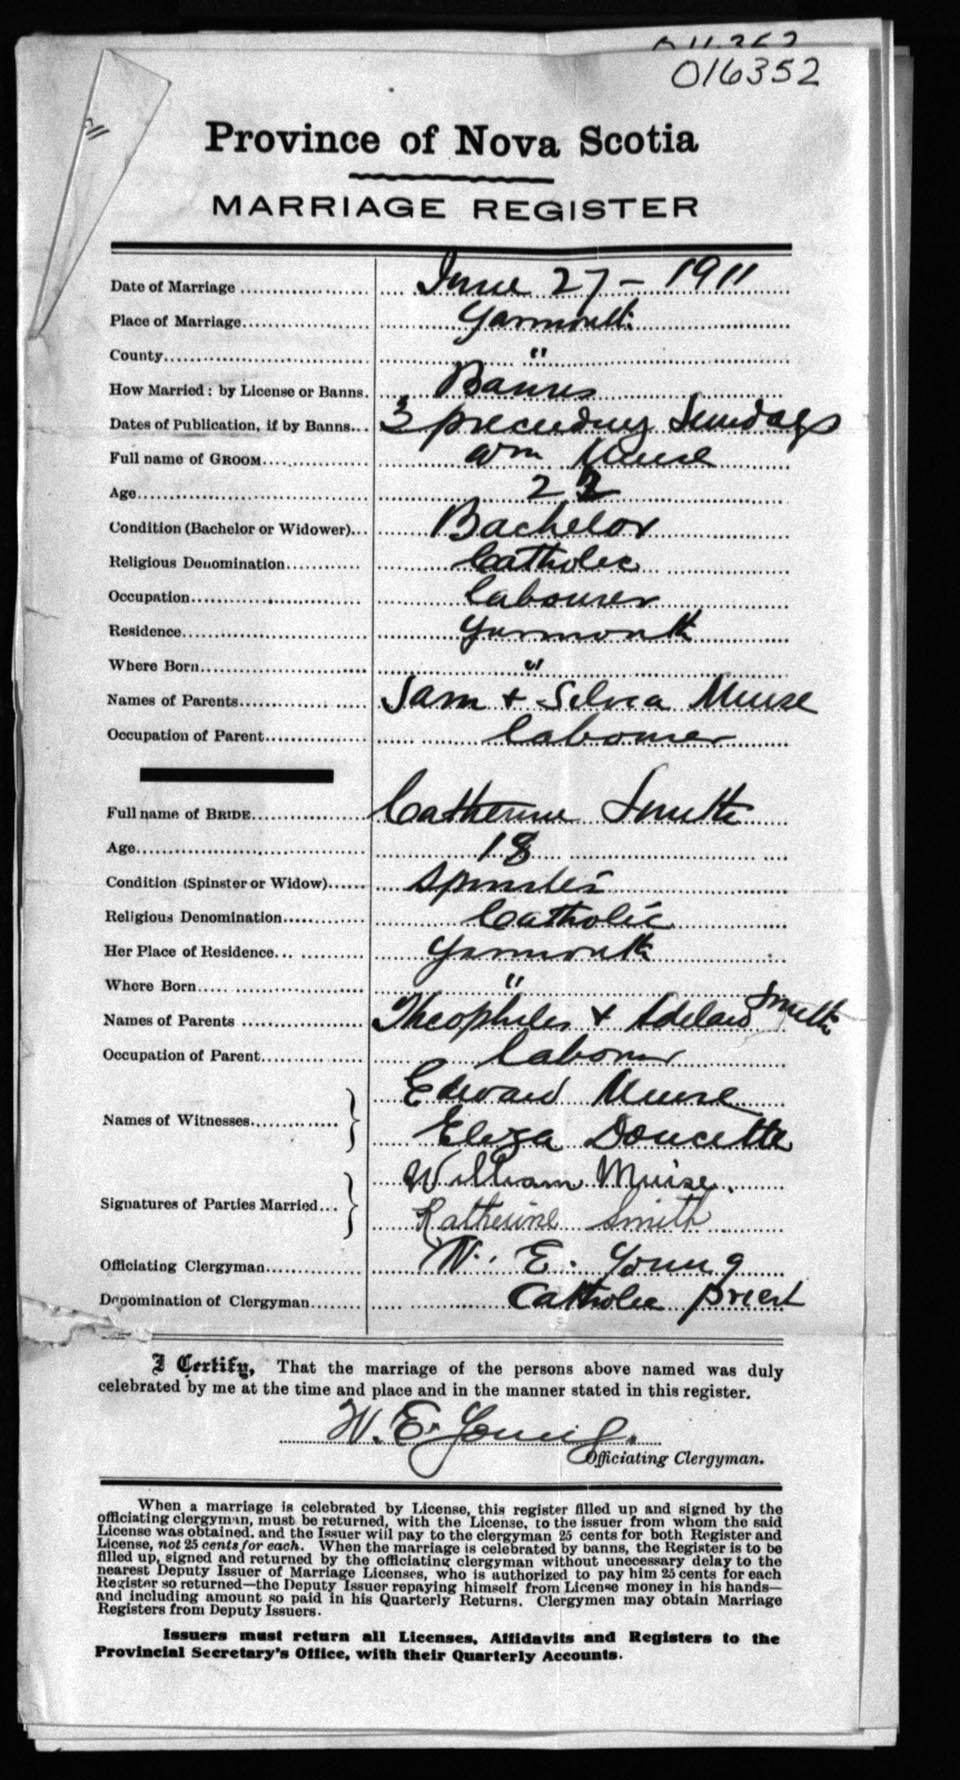 016352
Province of Nova Scotia
MARRIAGE REGISTER
Date of Marriage June 27 - 1911
Place of Marriage Yarmouth
County "
How Married: by License or Banns. Banns
Dates of Publication, if by Banns 3 preceding Sundays
Full name of GROOM Wm Muise
Age 22
Condition (Bachelor or Widower) Bachelor
Religious Denomination Catholic
Occupation labourer
Residence Yarmouth
Where Born "
Names of Parents Sam + Selvia Muise
Occupation of Parent labourer
Full name of BRIDE Catherine Smith
Age 18
Condition (Spinster or Widow) Spinster
Religious Denomination Catholic
Her Place of Residence Yarmouth
Where Born "
Names of Parents Theophiles + Adelaid Smith
Occupation of Parent labourer
Names of Witnesses Edward Muise
Eliza Doucette
Signatures of Parties Married William Muise.
Katherine Smith
Officiating Clergyman W. E. Young
Denomination of Clergyman Catholic priest
I Certify, That the marriage of the persons above named was duly
celebrated by me at the time and place and in the manner stated in this register.
W. E. Young.
Officiating Clergyman.
When a marriage is celebrated by License, this register filled up and signed by the
officiating clergyman, must be returned, with the License, to the issuer from whom the said
License was obtained, and the Issuer will pay to the clergyman 25 cents for both Register and
License, not 25 cents for each. When the marriage is celebrated by banns, the Register is to be
filled up, signed and returned by the officiating clergyman without unnecessary delay to the
nearest Deputy Issuer of Marriage Licenses, who is authorized to pay him 25 cents for each
Register so returned—the Deputy Issuer repaying himself from License money in his hands—
and including amount so paid in his Quarterly Returns. Clergymen may obtain Marriage
Registers from Deputy Issuers.
Issuers must return all Licenses, Affidavits and Registers to the
Provincial Secretary's Office, with their Quarterly Accounts.